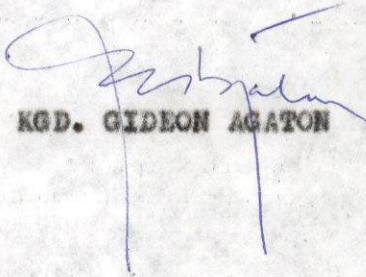 KGD. GIDEON AGATON